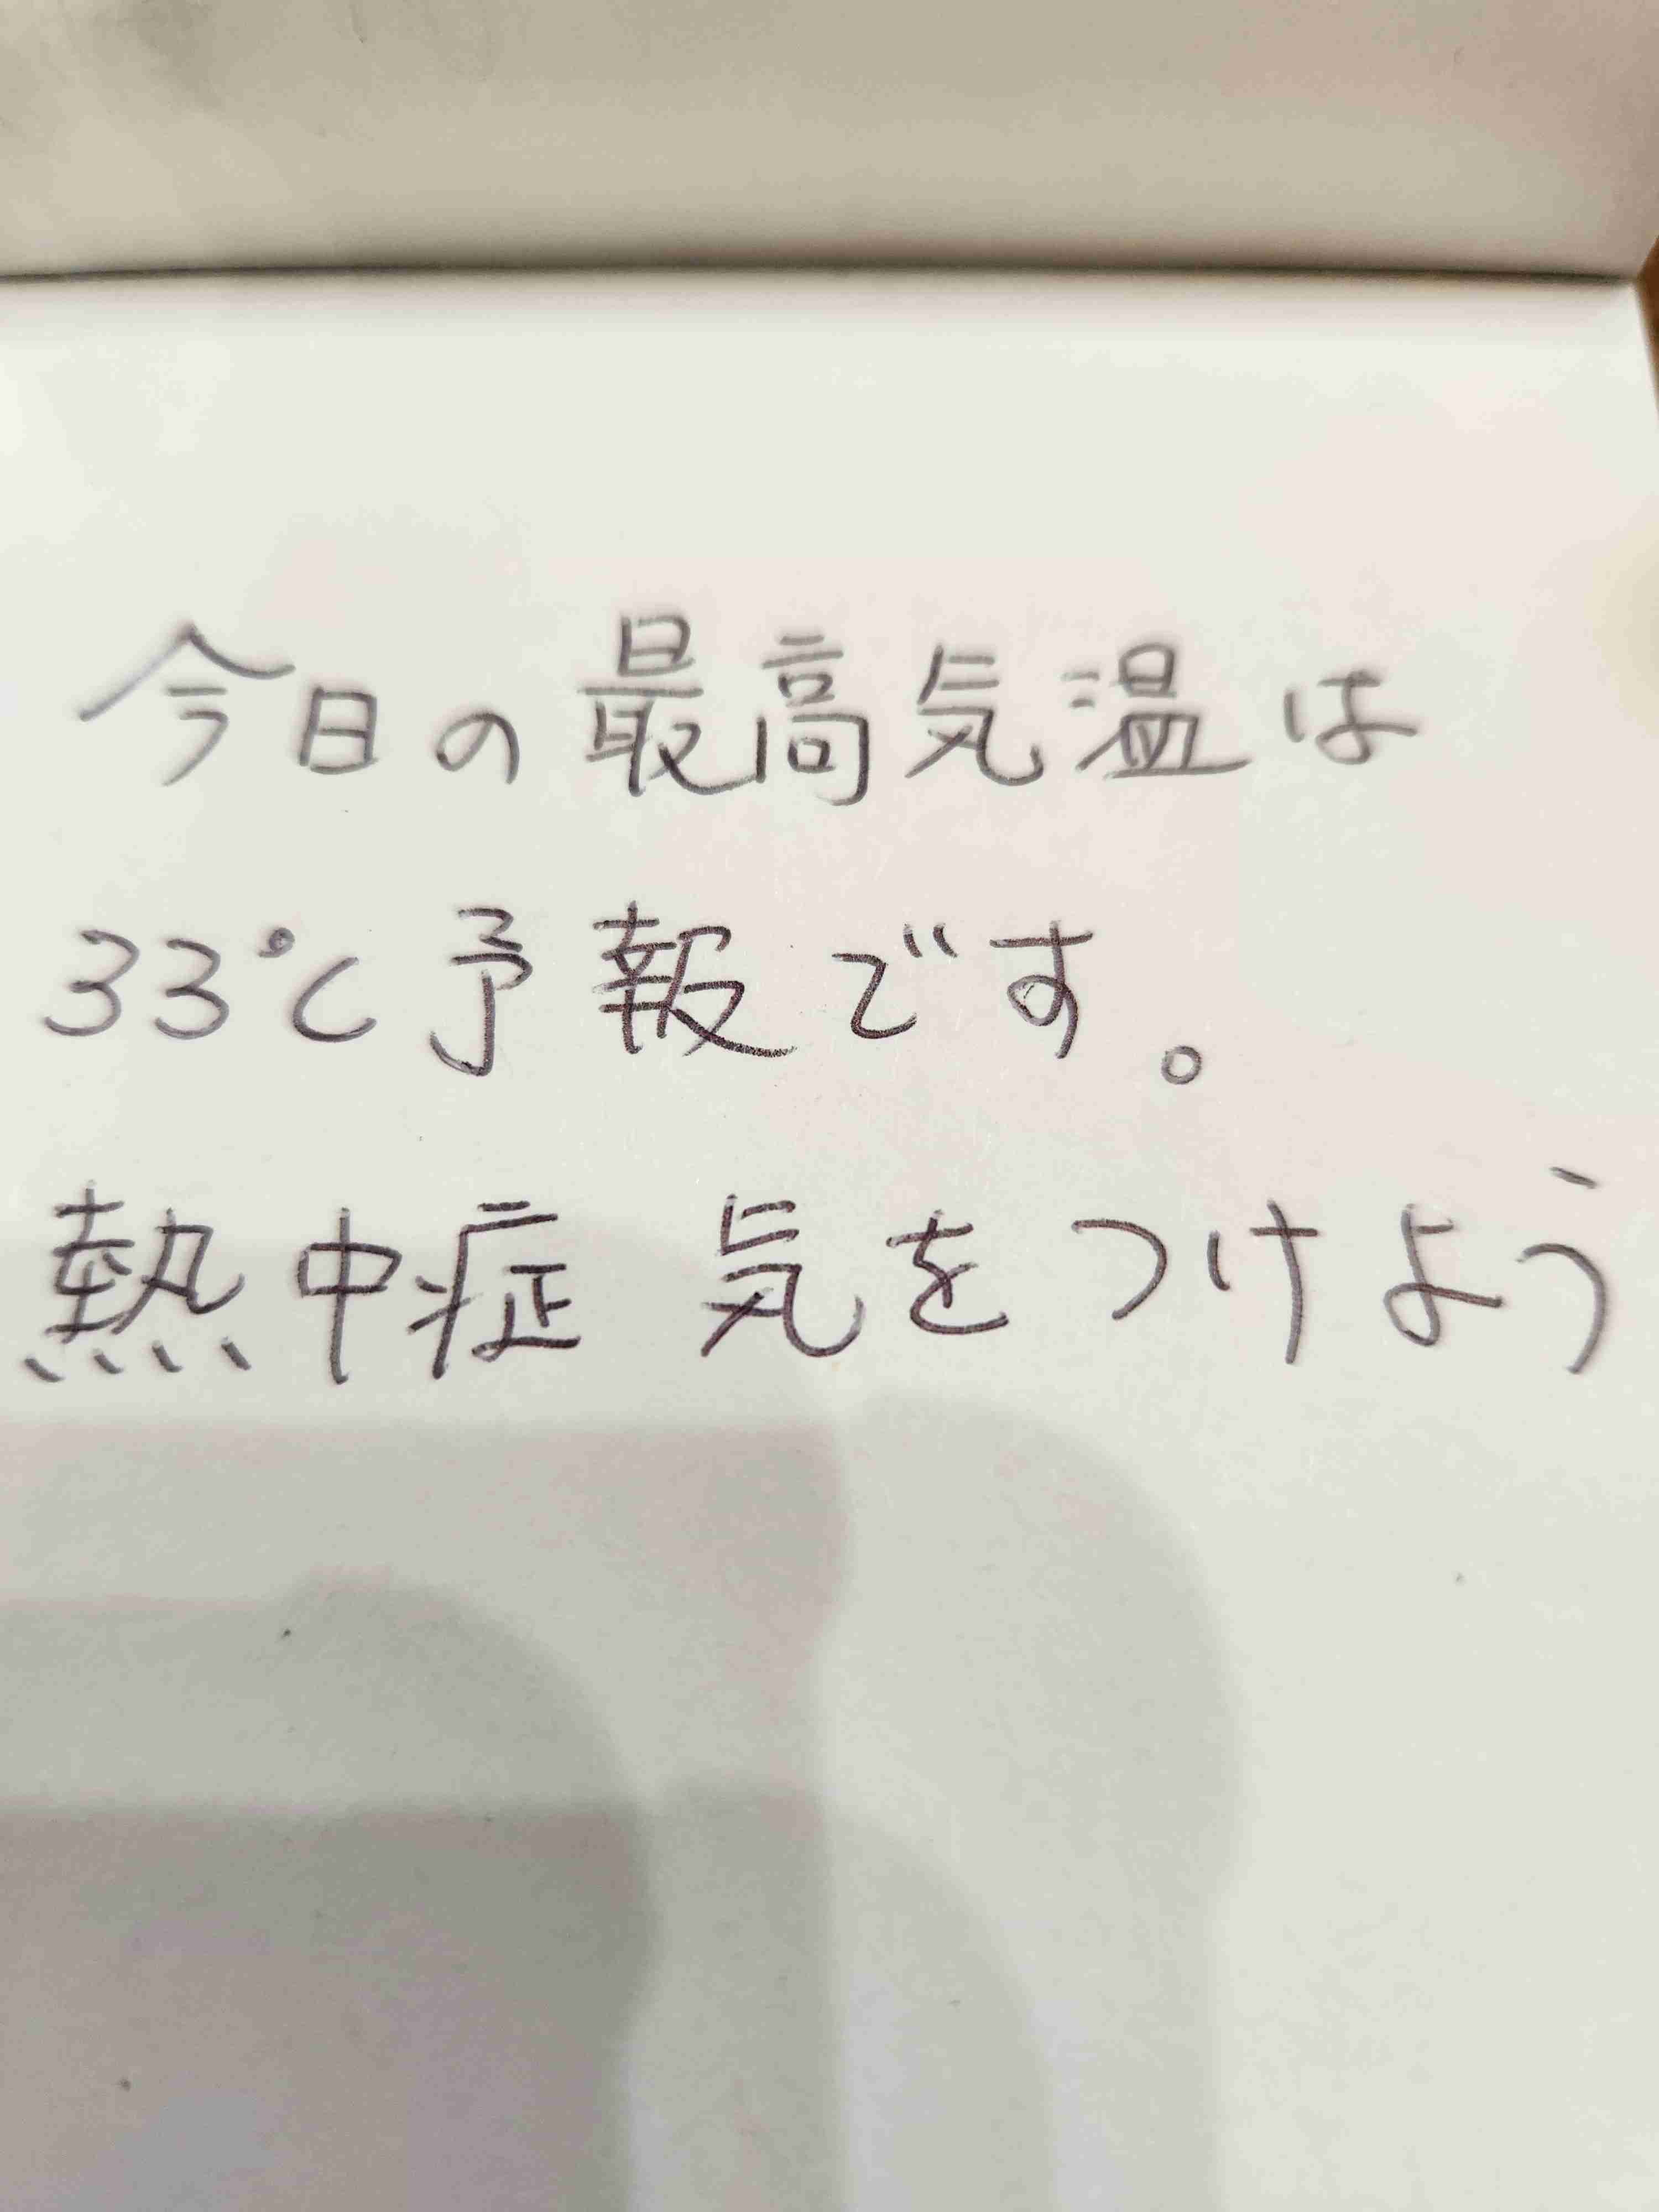 今日の最高気温は
33℃予報です。
熱中症 気をつけよう